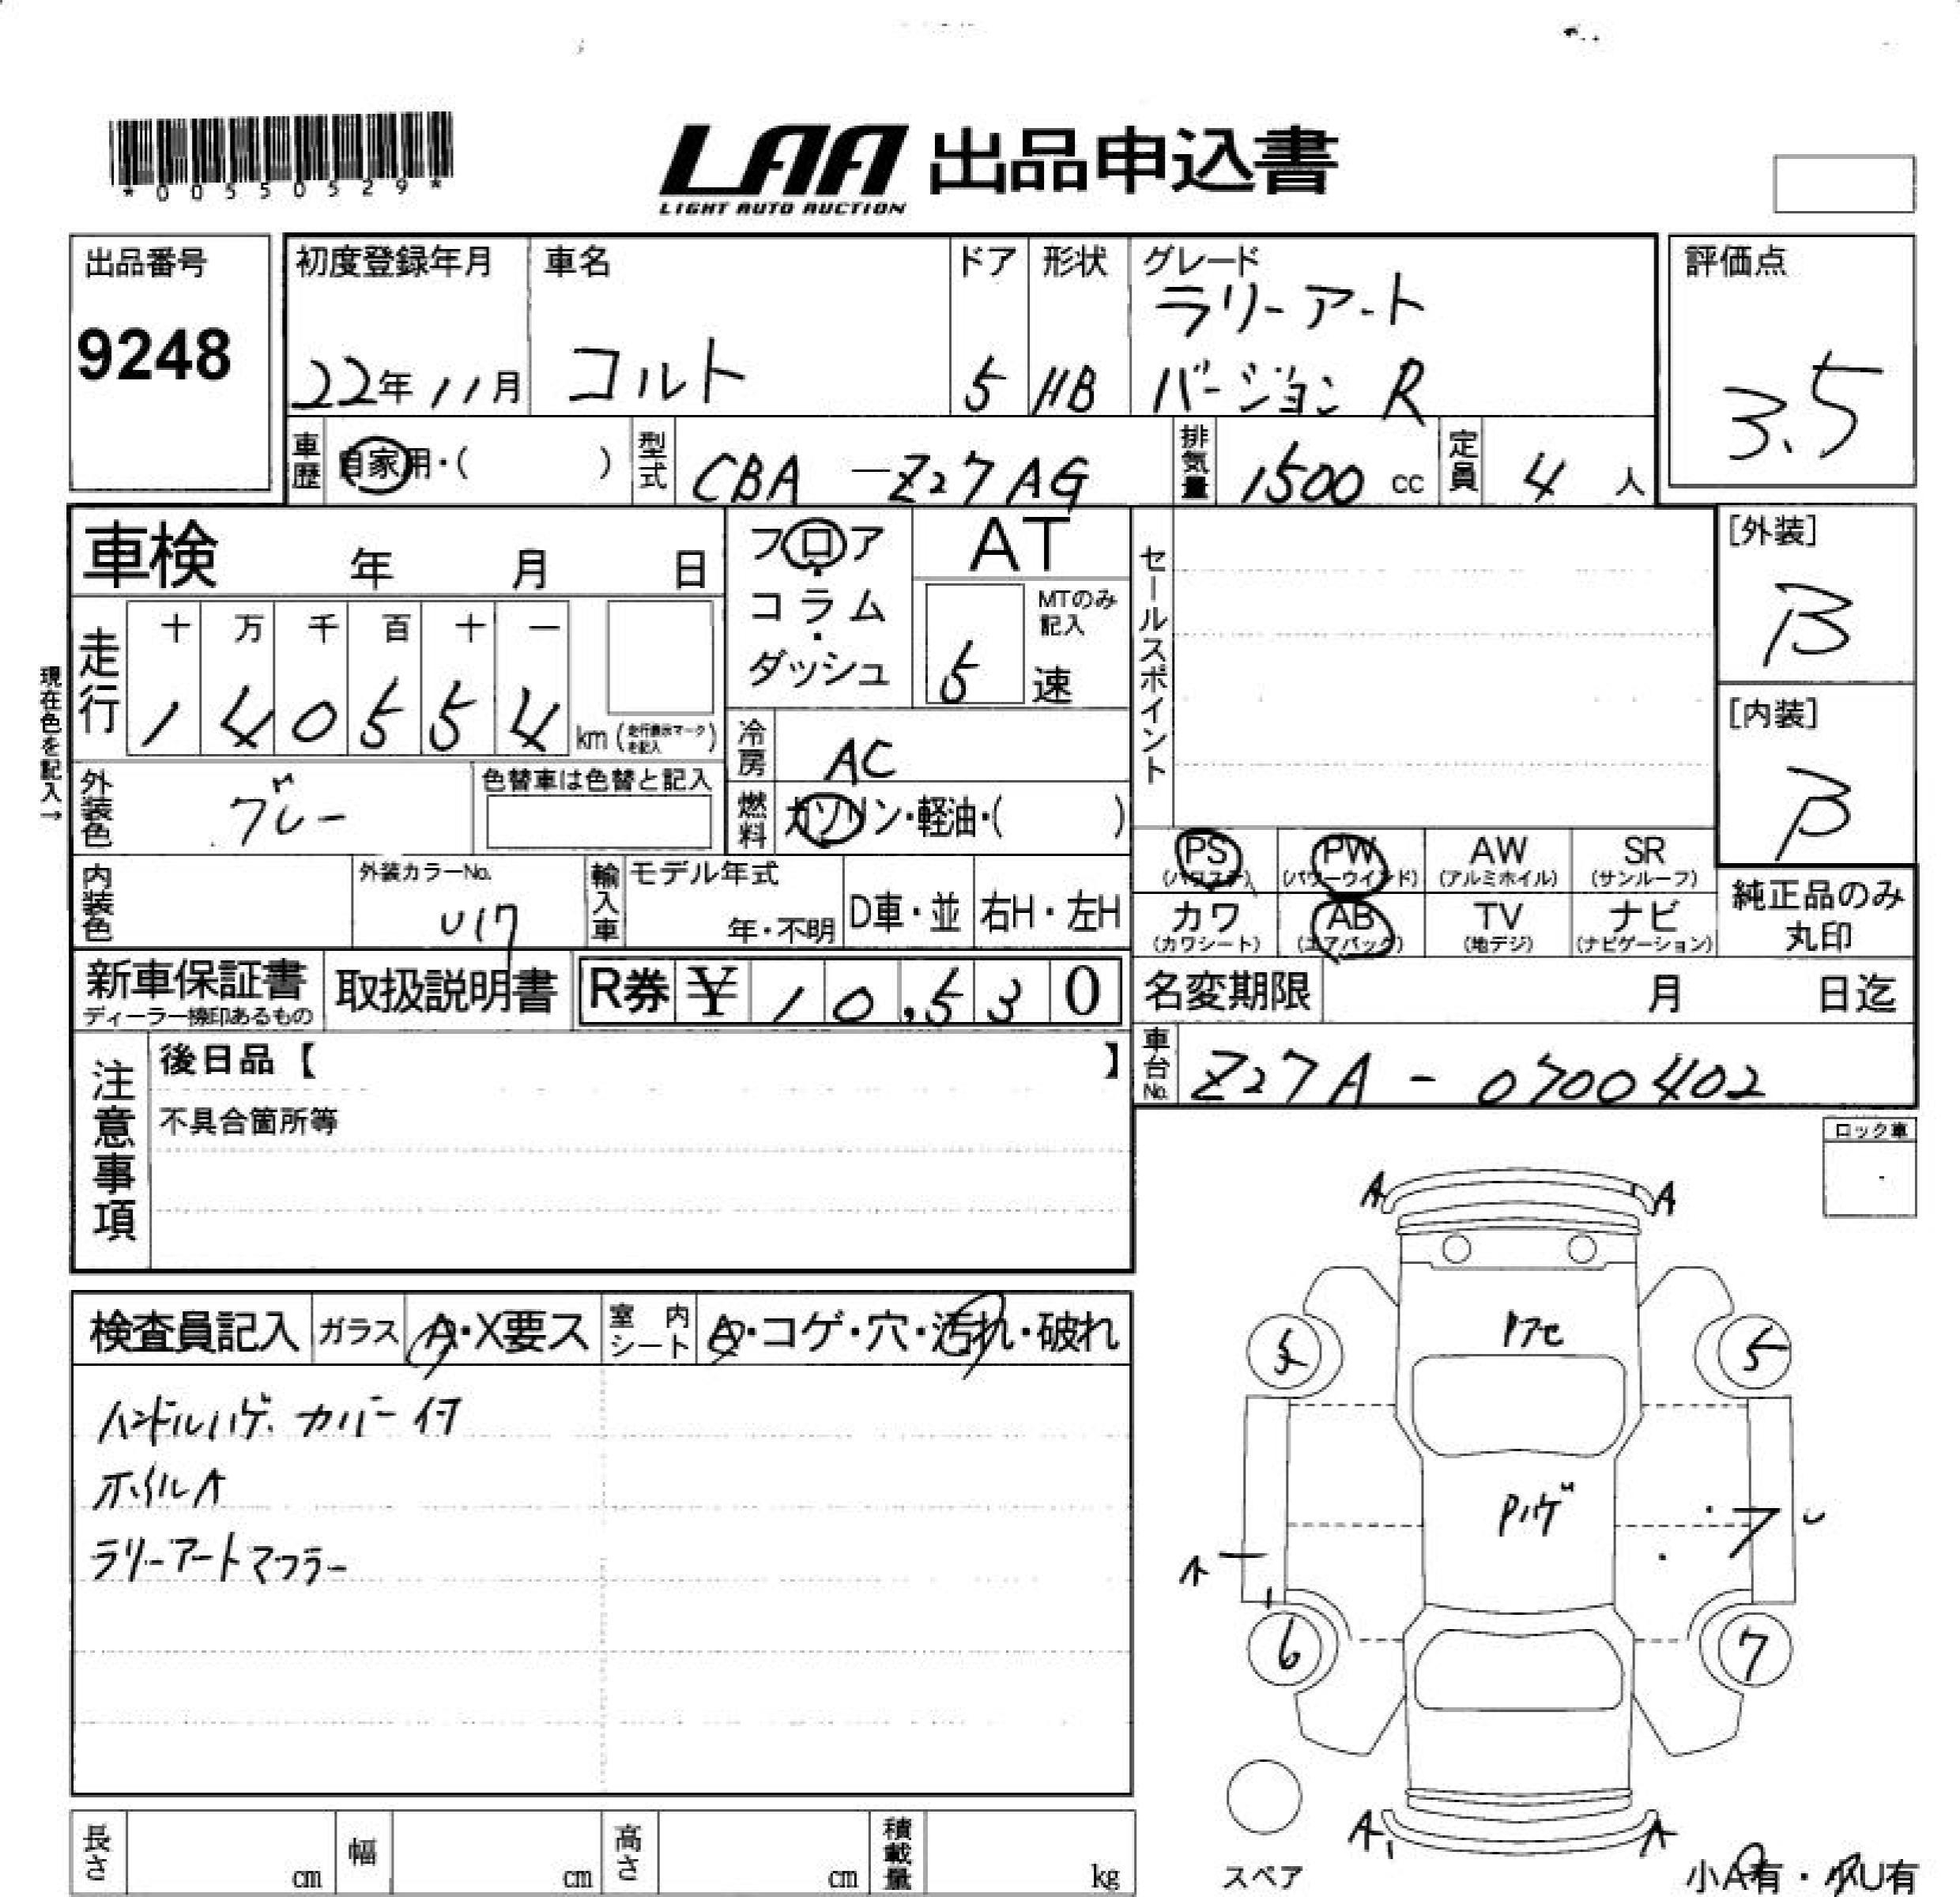 *00550529*
LAA 出品申込書
LIGHT AUTO AUCTION
出品番号
9248
初度登録年月
22年11月
車名
コルト
ドア
5
形状
HB
グレード
ラリーアート
バージョンR
評価点
3.5
車歴
自家用・( )
型式
CBA-Z27AG
排気量
1500 cc
定員
4 人
車検 年 月 日
フロア・コラム・ダッシュ
AT
MTのみ記入
5 速
セールスポイント
[外装]
B
[内装]
B
現在色を記入→
走行
十 万 千 百 十 一
1 4 0 5 5 4 km (走行表示マークを記入)
冷房
AC
外装色
グレー
色替車は色替と記入
燃料
ガソリン・軽油・( )
PS (パワステ)
PW (パワーウインド)
AW (アルミホイル)
SR (サンルーフ)
カワ (カワシート)
AB (エアバック)
TV (地デジ)
ナビ (ナビゲーション)
純正品のみ
丸印
内装色
外装カラーNo.
U17
輸入車
モデル年式
年・不明
D車・並
右H・左H
新車保証書
取扱説明書
R券 ¥ 10,530
名変期限 月 日迄
車台No.
Z27A-0700402
注意事項
後日品【 】
不具合箇所等
ロック車
検査員記入
ガラス
A・X要ス
室内シート
A・コゲ・穴・汚れ・破れ
ハンドルハゲ、カバー付
ホイルA
ラリーアートマフラー
A A
5 5
Pハゲ
A
7
6 7
A A
スペア
小A有・小U有
長さ cm
幅 cm
高さ cm
積載量 kg